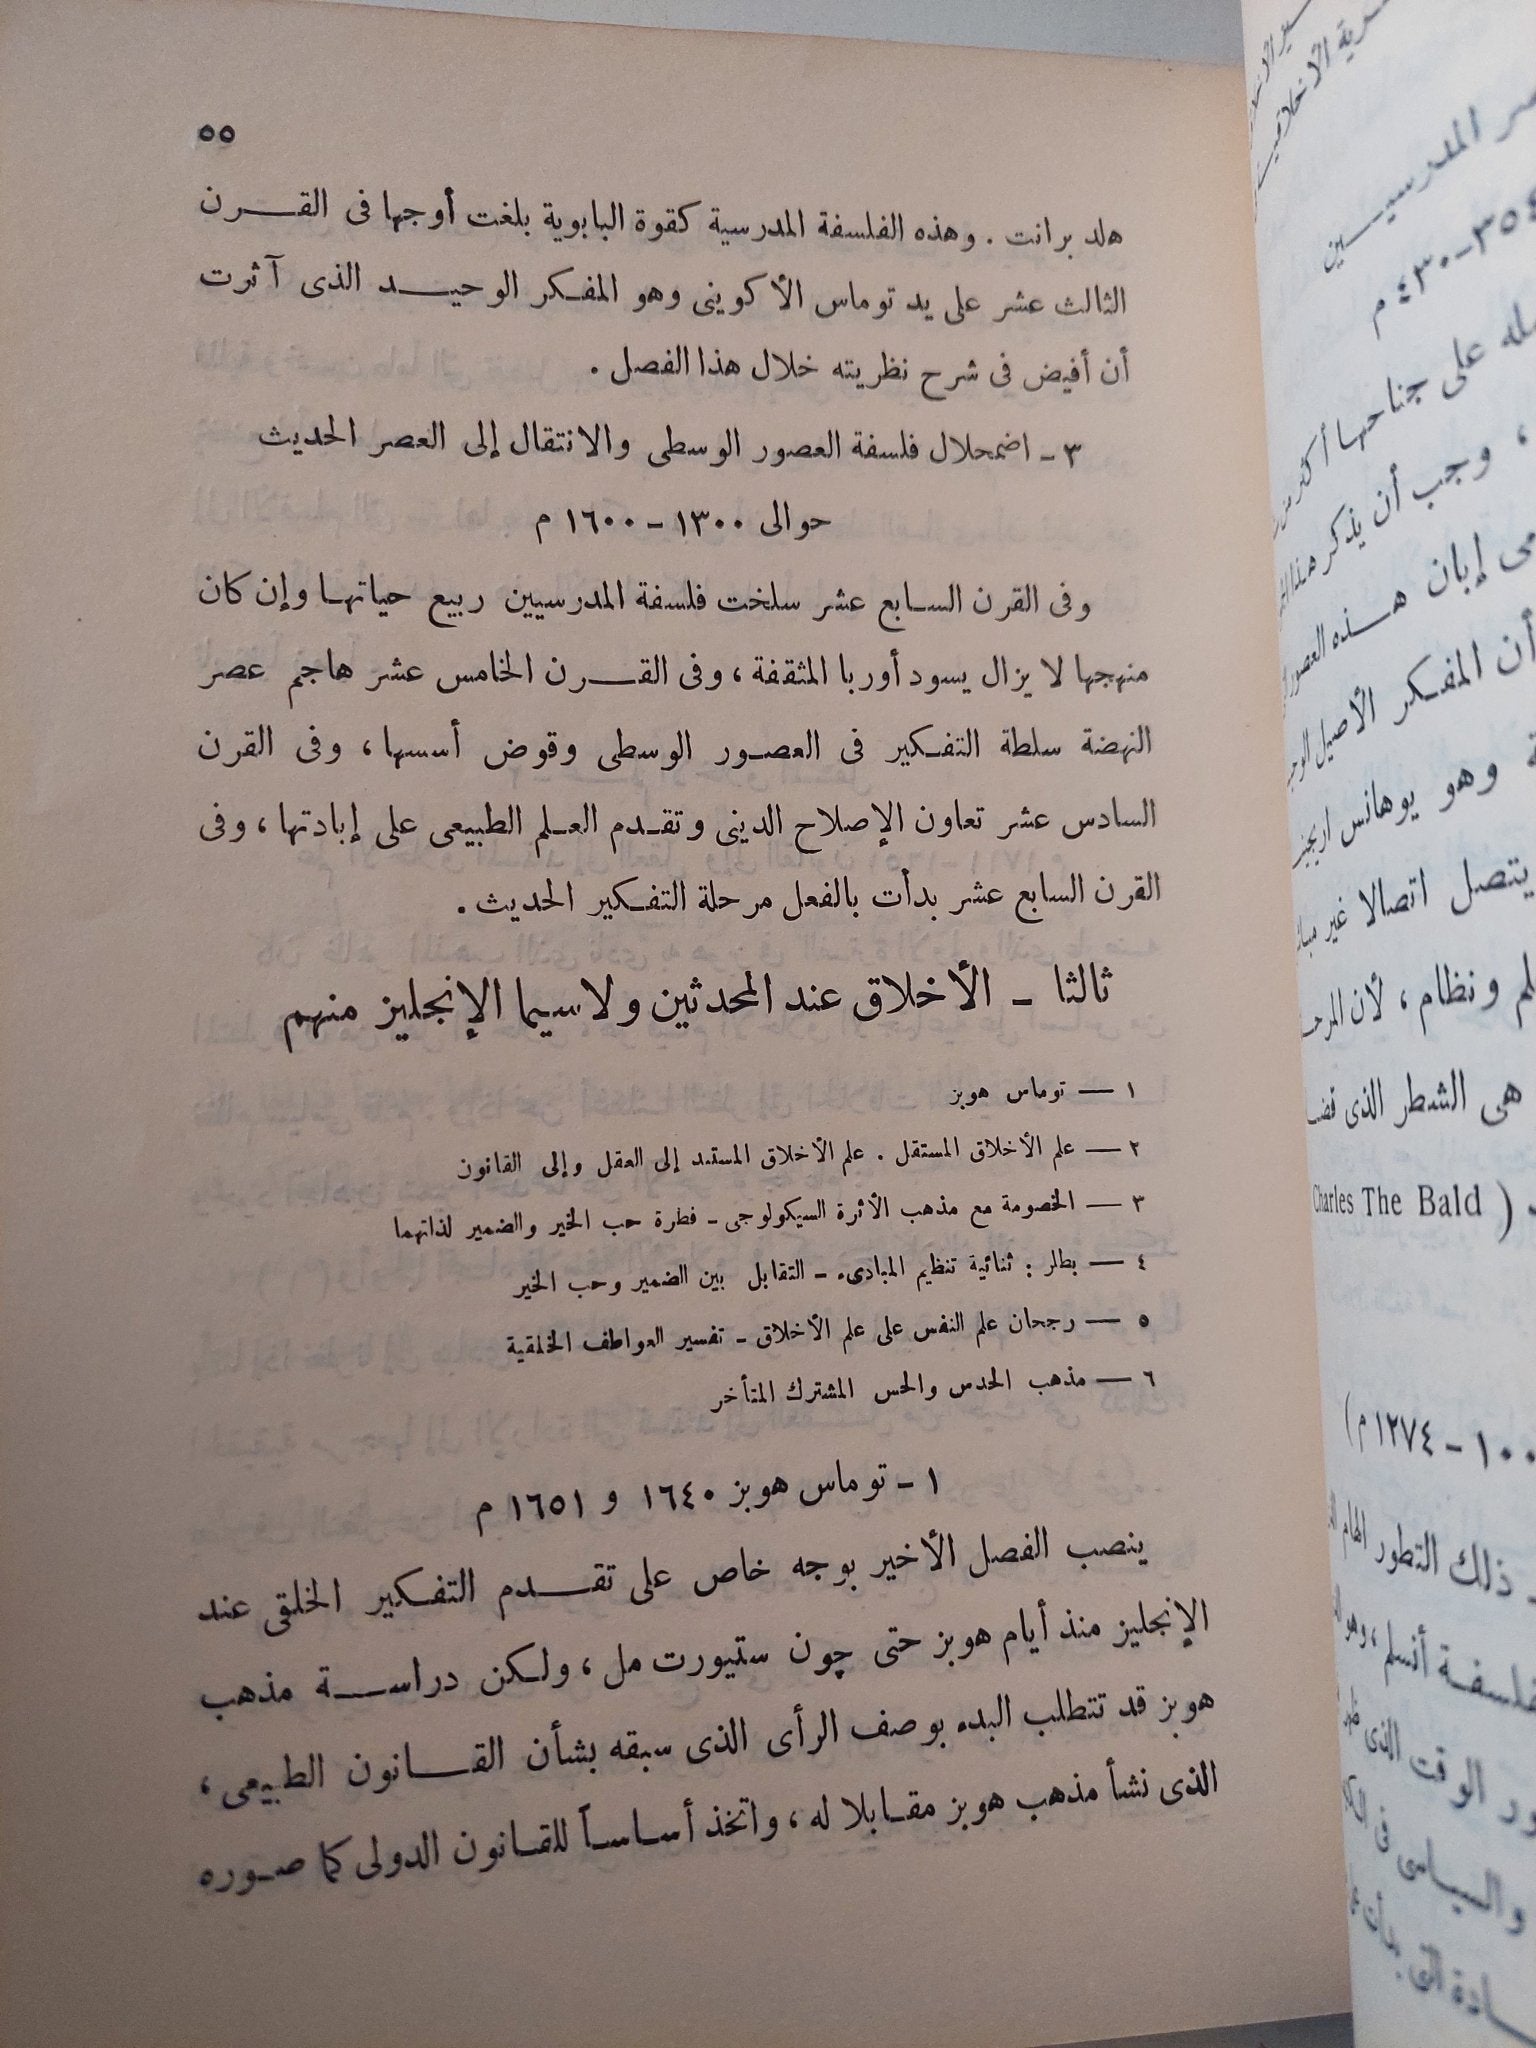 ٥٥
هلد برانت . وهذه الفلسفة المدرسية كقوة البابوية بلغت أوجها فى القرن
الثالث عشر على يد توماس الأكوينى وهو المفكر الوحيد الذى آثرت
أن أفيض فى شرح نظريته خلال هذا الفصل .
٣ - اضمحلال فلسفة العصور الوسطى والانتقال إلى العصر الحديث
حوالى ١٣٠٠ - ١٦٠٠ م
وفى القرن السابع عشر سلخت فلسفة المدرسيين ربيع حياتها وإن كان
منهجها لا يزال يسود أوربا المثقفة ، وفى القرن الخامس عشر هاجم عصر
النهضة سلطة التفكير فى العصور الوسطى وقوض أسسها ، وفى القرن
السادس عشر تعاون الإصلاح الدينى وتقدم العلم الطبيعى على إبادتها ، وفى
القرن السابع عشر بدأت بالفعل مرحلة التفكير الحديث .
ثالثا - الأخلاق عند المحدثين ولاسيما الإنجليز منهم
١ — توماس هوبز
٢ — علم الأخلاق المستقل . علم الأخلاق المستند إلى العقل وإلى القانون
٣ — الخصومة مع مذهب الأثرة السيكولوجى - فطرة حب الخير والضمير لذاتهما
٤ — بطلر : ثنائية تنظيم المبادىء - التقابل بين الضمير وحب الخير
٥ — رجحان علم النفس على علم الأخلاق - تفسير العواطف الخلقية
٦ — مذهب الحدس والحس المشترك المتأخر
١ - توماس هوبز ١٦٤٠ و ١٦٥١ م
ينصب الفصل الأخير بوجه خاص على تقدم التفكير الخلقى عند
الإنجليز منذ أيام هوبز حتى چون ستيورت مل ، ولكن دراسة مذهب
هوبز قد تتطلب البدء بوصف الرأى الذى سبقه بشأن القانون الطبيعى ،
الذى نشأ مذهب هوبز مقابلا له ، واتخذ أساساً للقانون الدولى كما صوره
المدرسيين
٤٣٠ م
على جناحها
، وجب أن يذكر هذا
إبان هذه العصور
أن المفكر الأصيل
وهو يوهانس
يتصل اتصالا غير
ونظام ، لأن
هى الشطر الذى
( Charles The Bald
- ١٢٧٤ م )
ذلك التطور الهام
أنسلم ، وهو
الوقت الذى